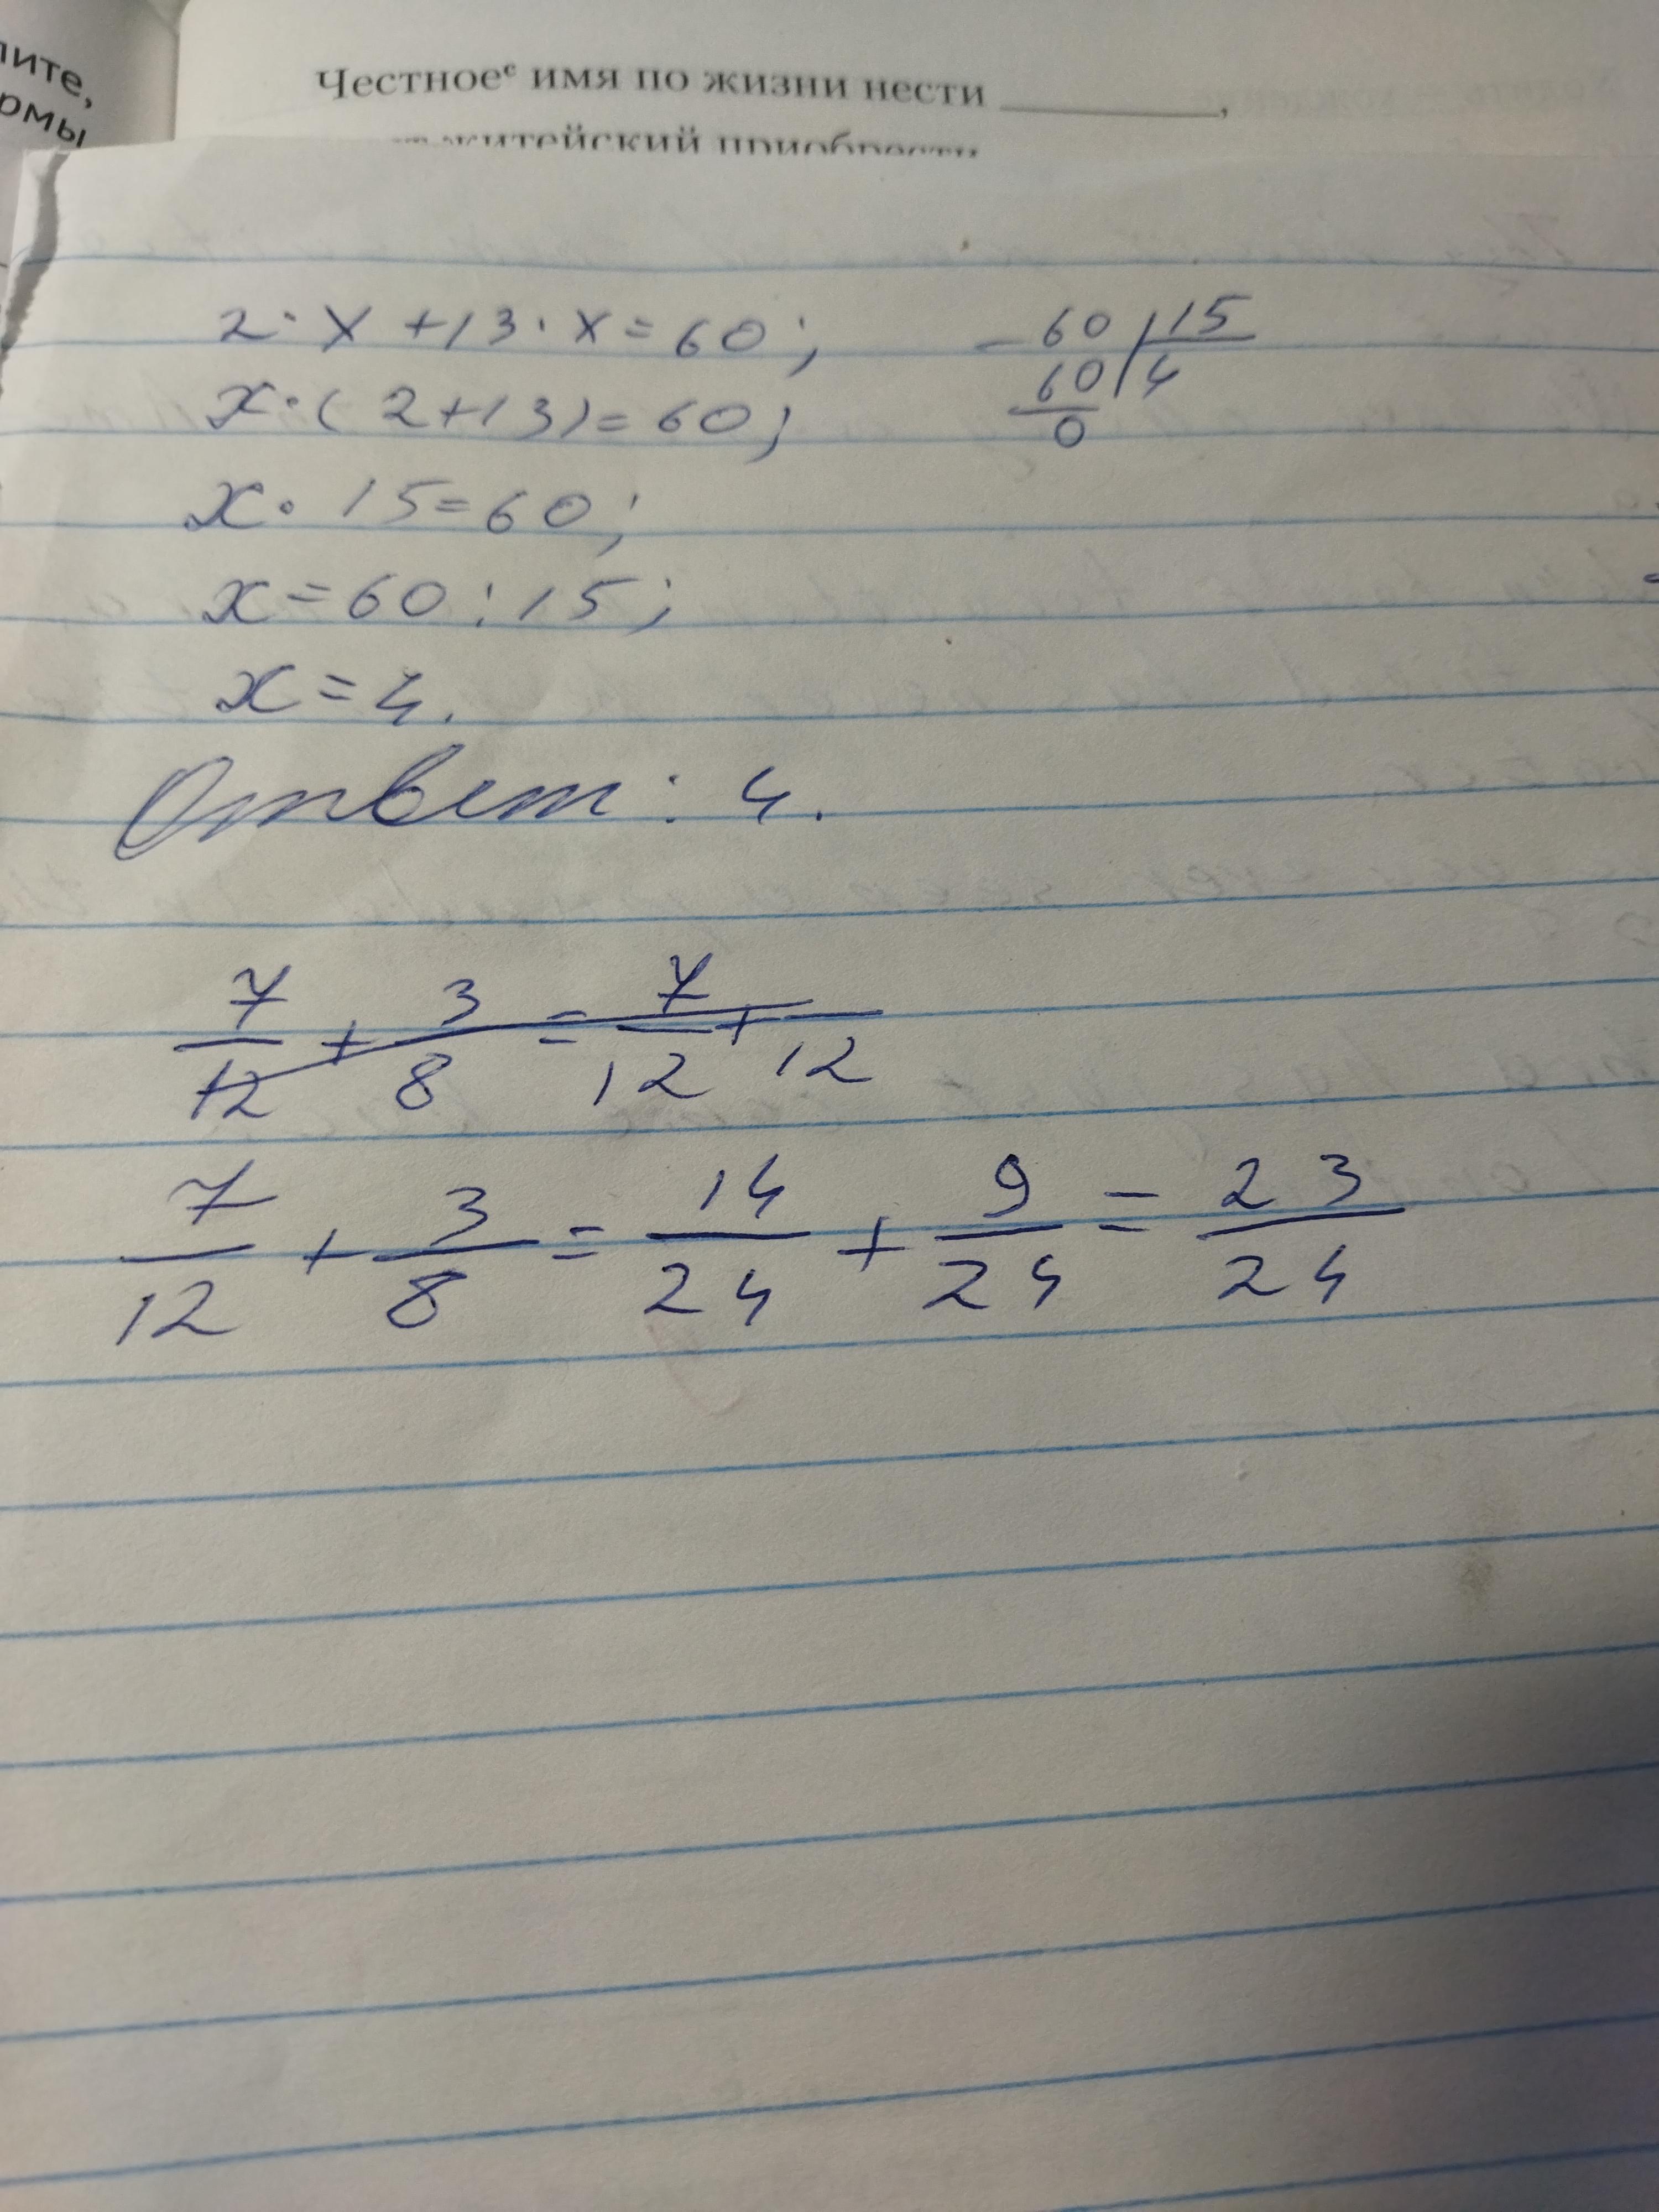 лите,
рмы
Честноеᶜ имя по жизни нести __________,
житейский приобрести
2·x+13·x=60;
x·(2+13)=60;
x·15=60;
x=60:15;
x=4.
Ответ: 4.
-60|15
60|4
0
7/12+3/8=7/12+ /12
7/12+3/8=14/24+9/24=23/24